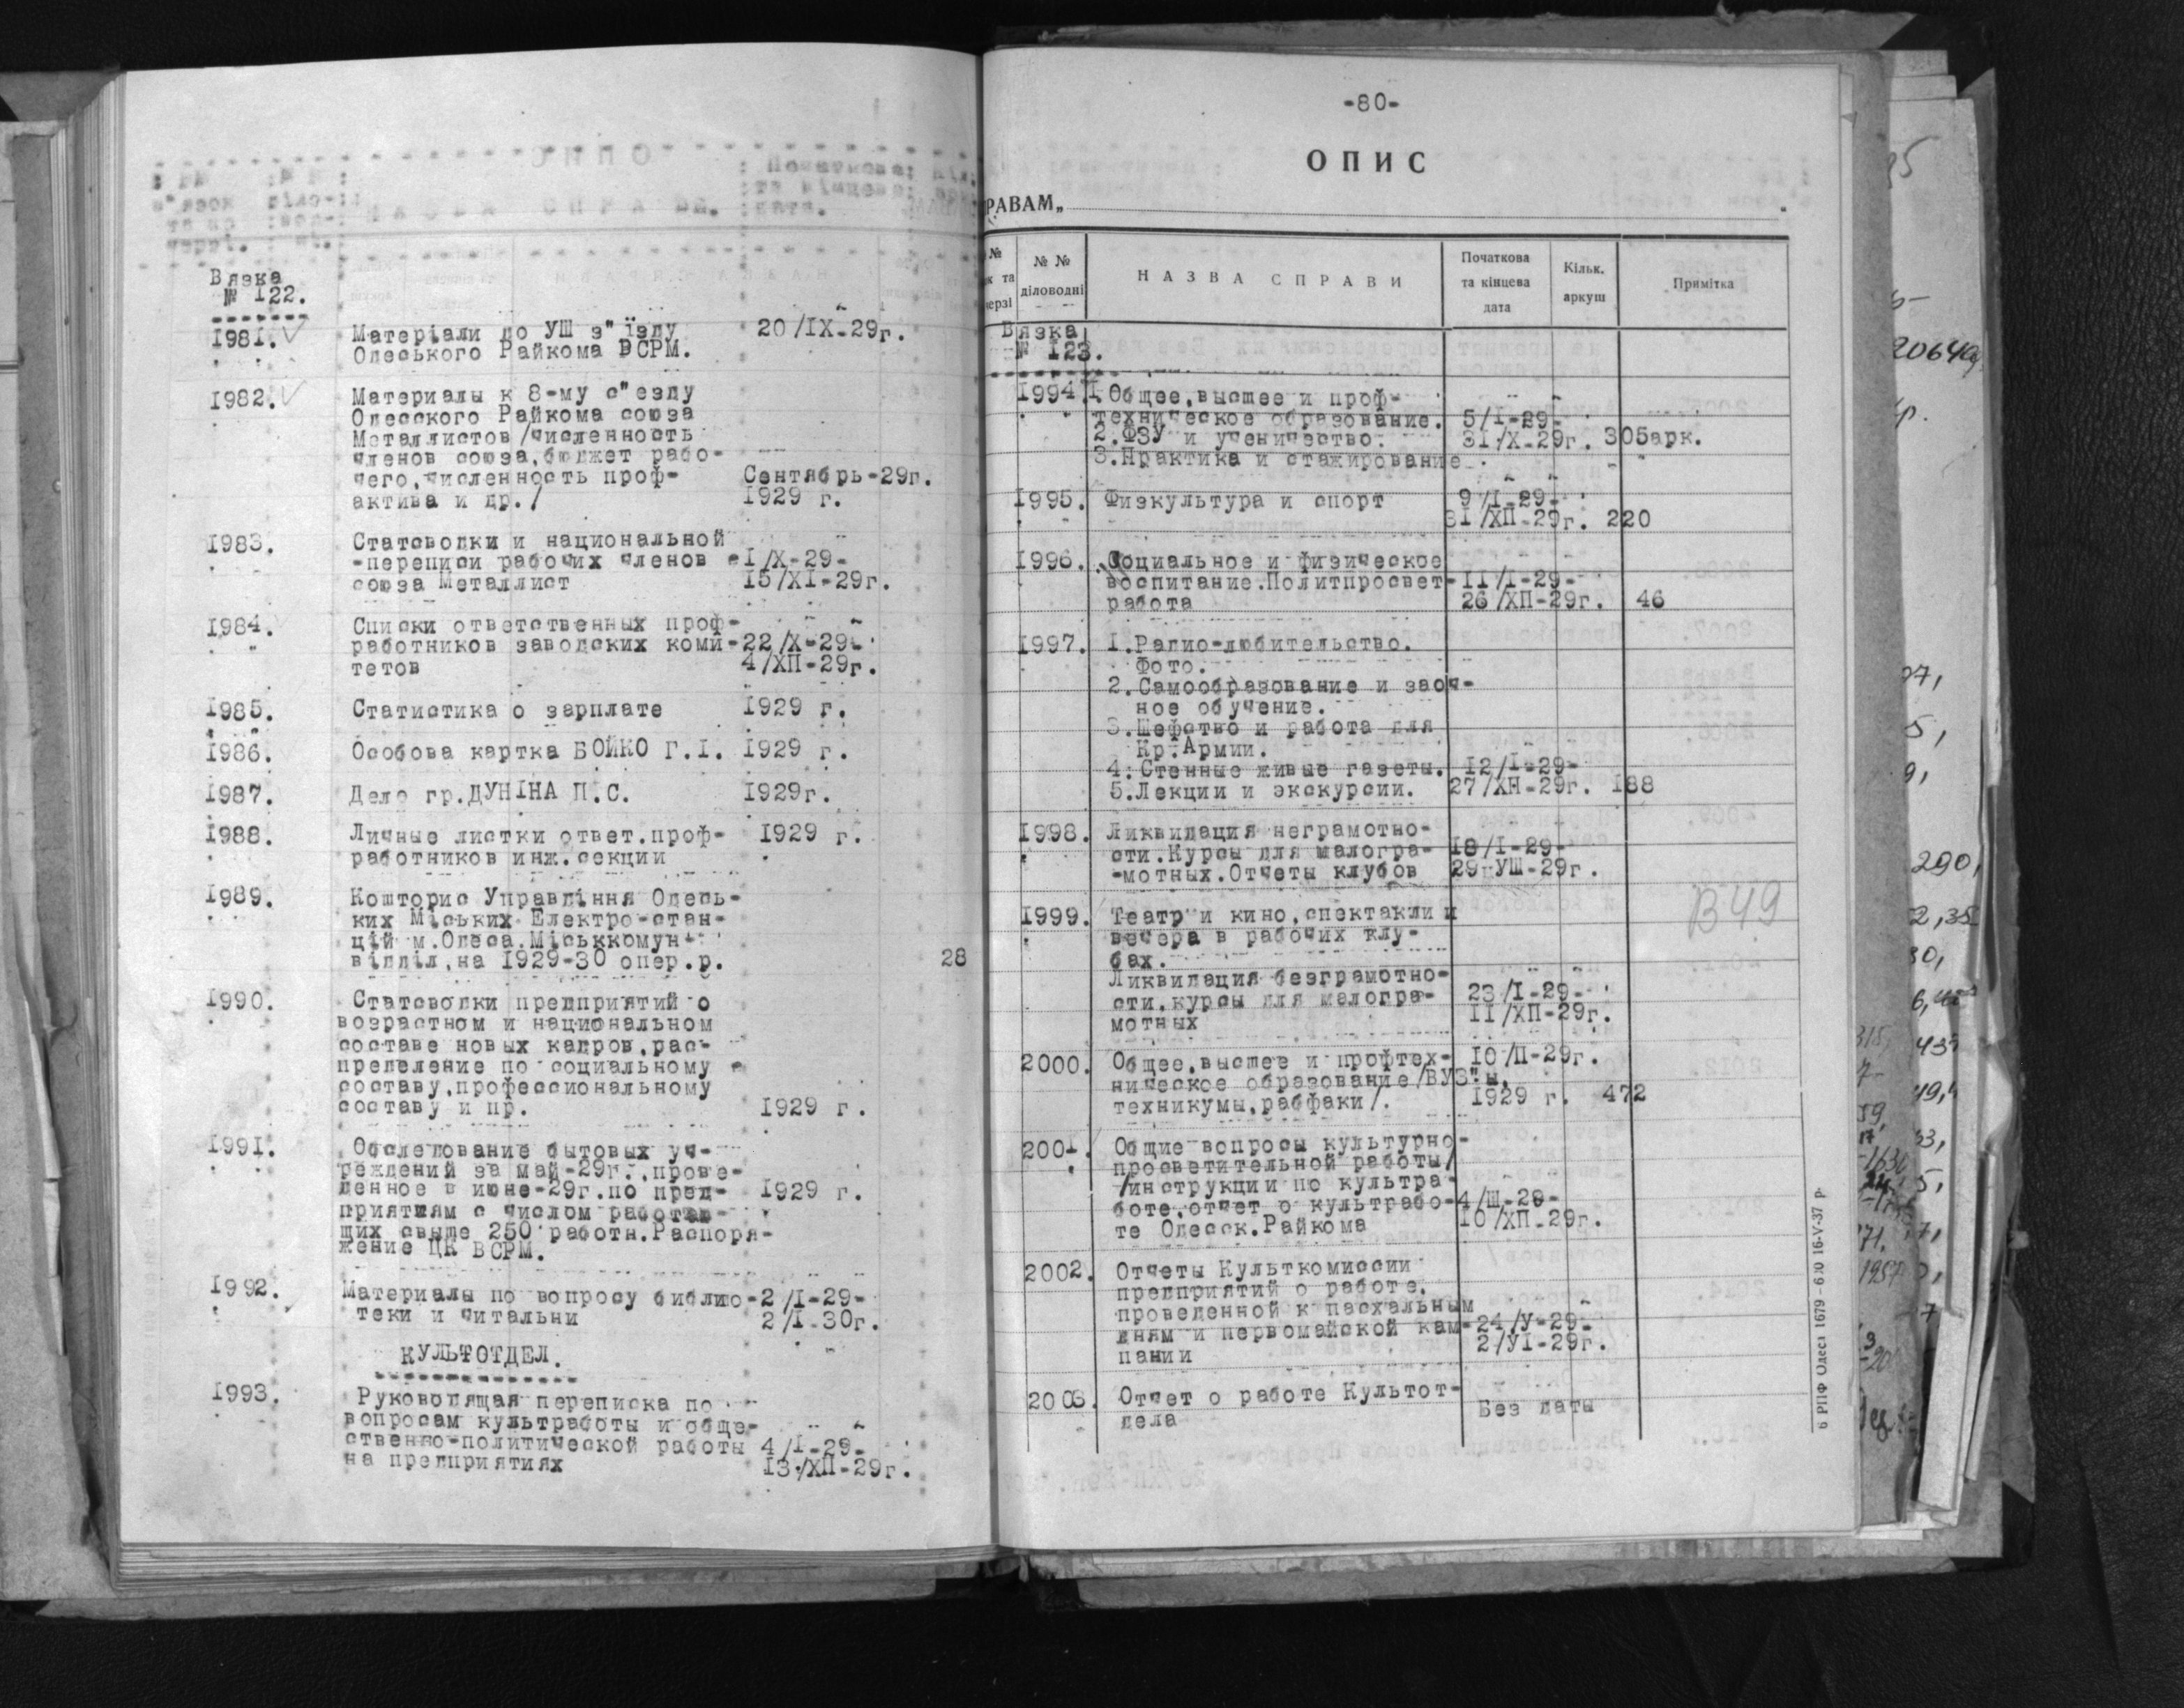 Вязка
№ 122.
1981. Матеріали до УШ з"їзду 20/IX-29г.
Одеського Райкома ВСРМ.
1982. Материалы к 8-му с"езду
Одесского Райкома союза
Металлистов/численность
членов союза,бюджет рабо-
чего,численность проф- Сентябрь-29г.
актива и др./ 1929 г.
1983. Статсводки и национальной
-переписи рабочих членов 1/X-29-
союза Металлист 15/XI-29г.
1984. Списки ответственных проф-
работников заводских коми- 22/X-29-
тетов 4/ХП-29г.
1985. Статистика о зарплате 1929 г.
1986. Особова картка БОЙКО Г.І. 1929 г.
1987. Дело гр.ДУНІНА П.С. 1929г.
1988. Личные листки ответ.проф- 1929 г.
работников инж.секции
1989. Кошторис Управління Одесь-
ких Міських Електро-стан-
цій м.Одеса.Міськкомун-
відділ,на 1929-30 опер.р. 28
1990. Статсводки предприятий о
возрастном и национальном
составе новых кадров,рас-
пределение по социальному
составу,профессиональному
составу и пр. 1929 г.
1991. Обследование бытовых уч-
реждений за май-29г.,прове-
денное в июне-29г.по пред- 1929 г.
приятиям с числом работаю-
щих свыше 250 работн.Распоря-
жение ЦК ВСРМ.
1992. Материалы по вопросу библио- 2/I-29-
теки и читальни 2/I-30г.
КУЛЬТОТДЕЛ.
1993. Руководящая переписка по
вопросам культработы и обще-
ственно-политической работы 4/I-29-
на предприятиях 13/ХП-29г.
-80-
ОПИС
РАВАМ„
№ № № Початкова Кільк.
ок та діловодні НАЗВА СПРАВИ та кінцева аркуш Примітка
черзі дата
Вязка
№ 123.
1994. 1.Общее,высшее и проф-
техническое образование. 5/I-29-
2.ФЗУ и ученичество. 31/X-29г. 305арк.
3.Практика и стажирование
1995. Физкультура и спорт 9/I-29-
31/ХП-29г. 220
1996. Социальное и физическое
воспитание.Политпросвет- 11/I-29-
работа 26/ХП-29г. 46
1997. 1.Радио-любительство.
Фото.
2.Самообразование и заоч-
ное обучение.
3.Шефство и работа для
Кр.Армии.
4.Стенные живые газеты. 12/I-29-
5.Лекции и экскурсии. 27/ХП-29г. 188
1998. Ликвидация неграмотно-
сти.Курсы для малогра- 18/I-29-
-мотных.Отчеты клубов 29-УШ-29г.
1999. Театр и кино,спектакли и
вечера в рабочих клу-
бах.
Ликвидация безграмотно-
сти,курсы для малогра- 23/I-29-
мотных 11/ХП-29г.
В49
2000. Общее,высшее и профтех- 10/П-29г.
ническое образование/ВУЗ"ы,
техникумы,рабфаки/. 1929 г. 472
2001. Общие вопросы культурно-
просветительной работы/
/инструкции по культра-
боте,отчет о культрабо- 4/Ш-29-
те Одесск.Райкома 10/ХП-29г.
2002. Отчеты Культкомиссии
предприятий о работе,
проведенной к пасхальным
дням и первомайской кам- 24/У-29-
пании 2/УІ-29г.
2003. Отчет о работе Культот-
дела Без даты